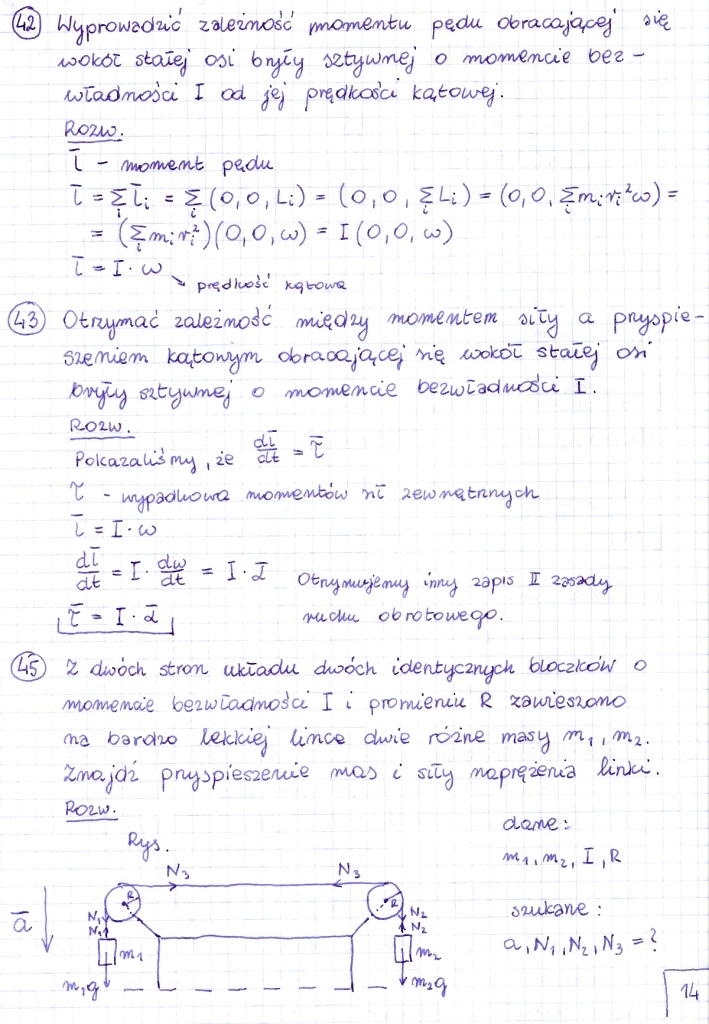 42 Wyprowadzić zależność momentu pędu obracającej się
wokół stałej osi bryły sztywnej o momencie bez-
władności I od jej prędkości kątowej.
Rozw.
l̄ - moment pędu
l̄ = Σᵢ l̄ᵢ = Σᵢ (0,0,Lᵢ) = (0,0, Σᵢ Lᵢ) = (0,0, Σᵢ mᵢ rᵢ² ω) =
= (Σᵢ mᵢ rᵢ²)(0,0,ω) = I (0,0,ω)
l̄ = I · ω
prędkość kątowa
43 Otrzymać zależność między momentem siły a przyspie-
szeniem kątowym obracającej się wokół stałej osi
bryły sztywnej o momencie bezwładności I.
Rozw.
Pokazaliśmy, że dl̄/dt = τ̄
τ - wypadkowa momentów sił zewnętrznych
l̄ = I · ω
dl̄/dt = I · dω/dt = I · ᾱ Otrzymujemy inny zapis II zasady
τ̄ = I · ᾱ ruchu obrotowego.
45 Z dwóch stron układu dwóch identycznych bloczków o
momencie bezwładności I i promieniu R zawieszono
na bardzo lekkiej lince dwie różne masy m₁, m₂.
Znajdź przyspieszenie mas i siły naprężenia linki.
Rozw.
dane:
Rys.
m₁, m₂, I, R
N₃ N₃
R R
szukane:
ā N₁ N₂
N₁ N₂
m₁ m₂ a, N₁, N₂, N₃ = ?
m₁g m₂g
14